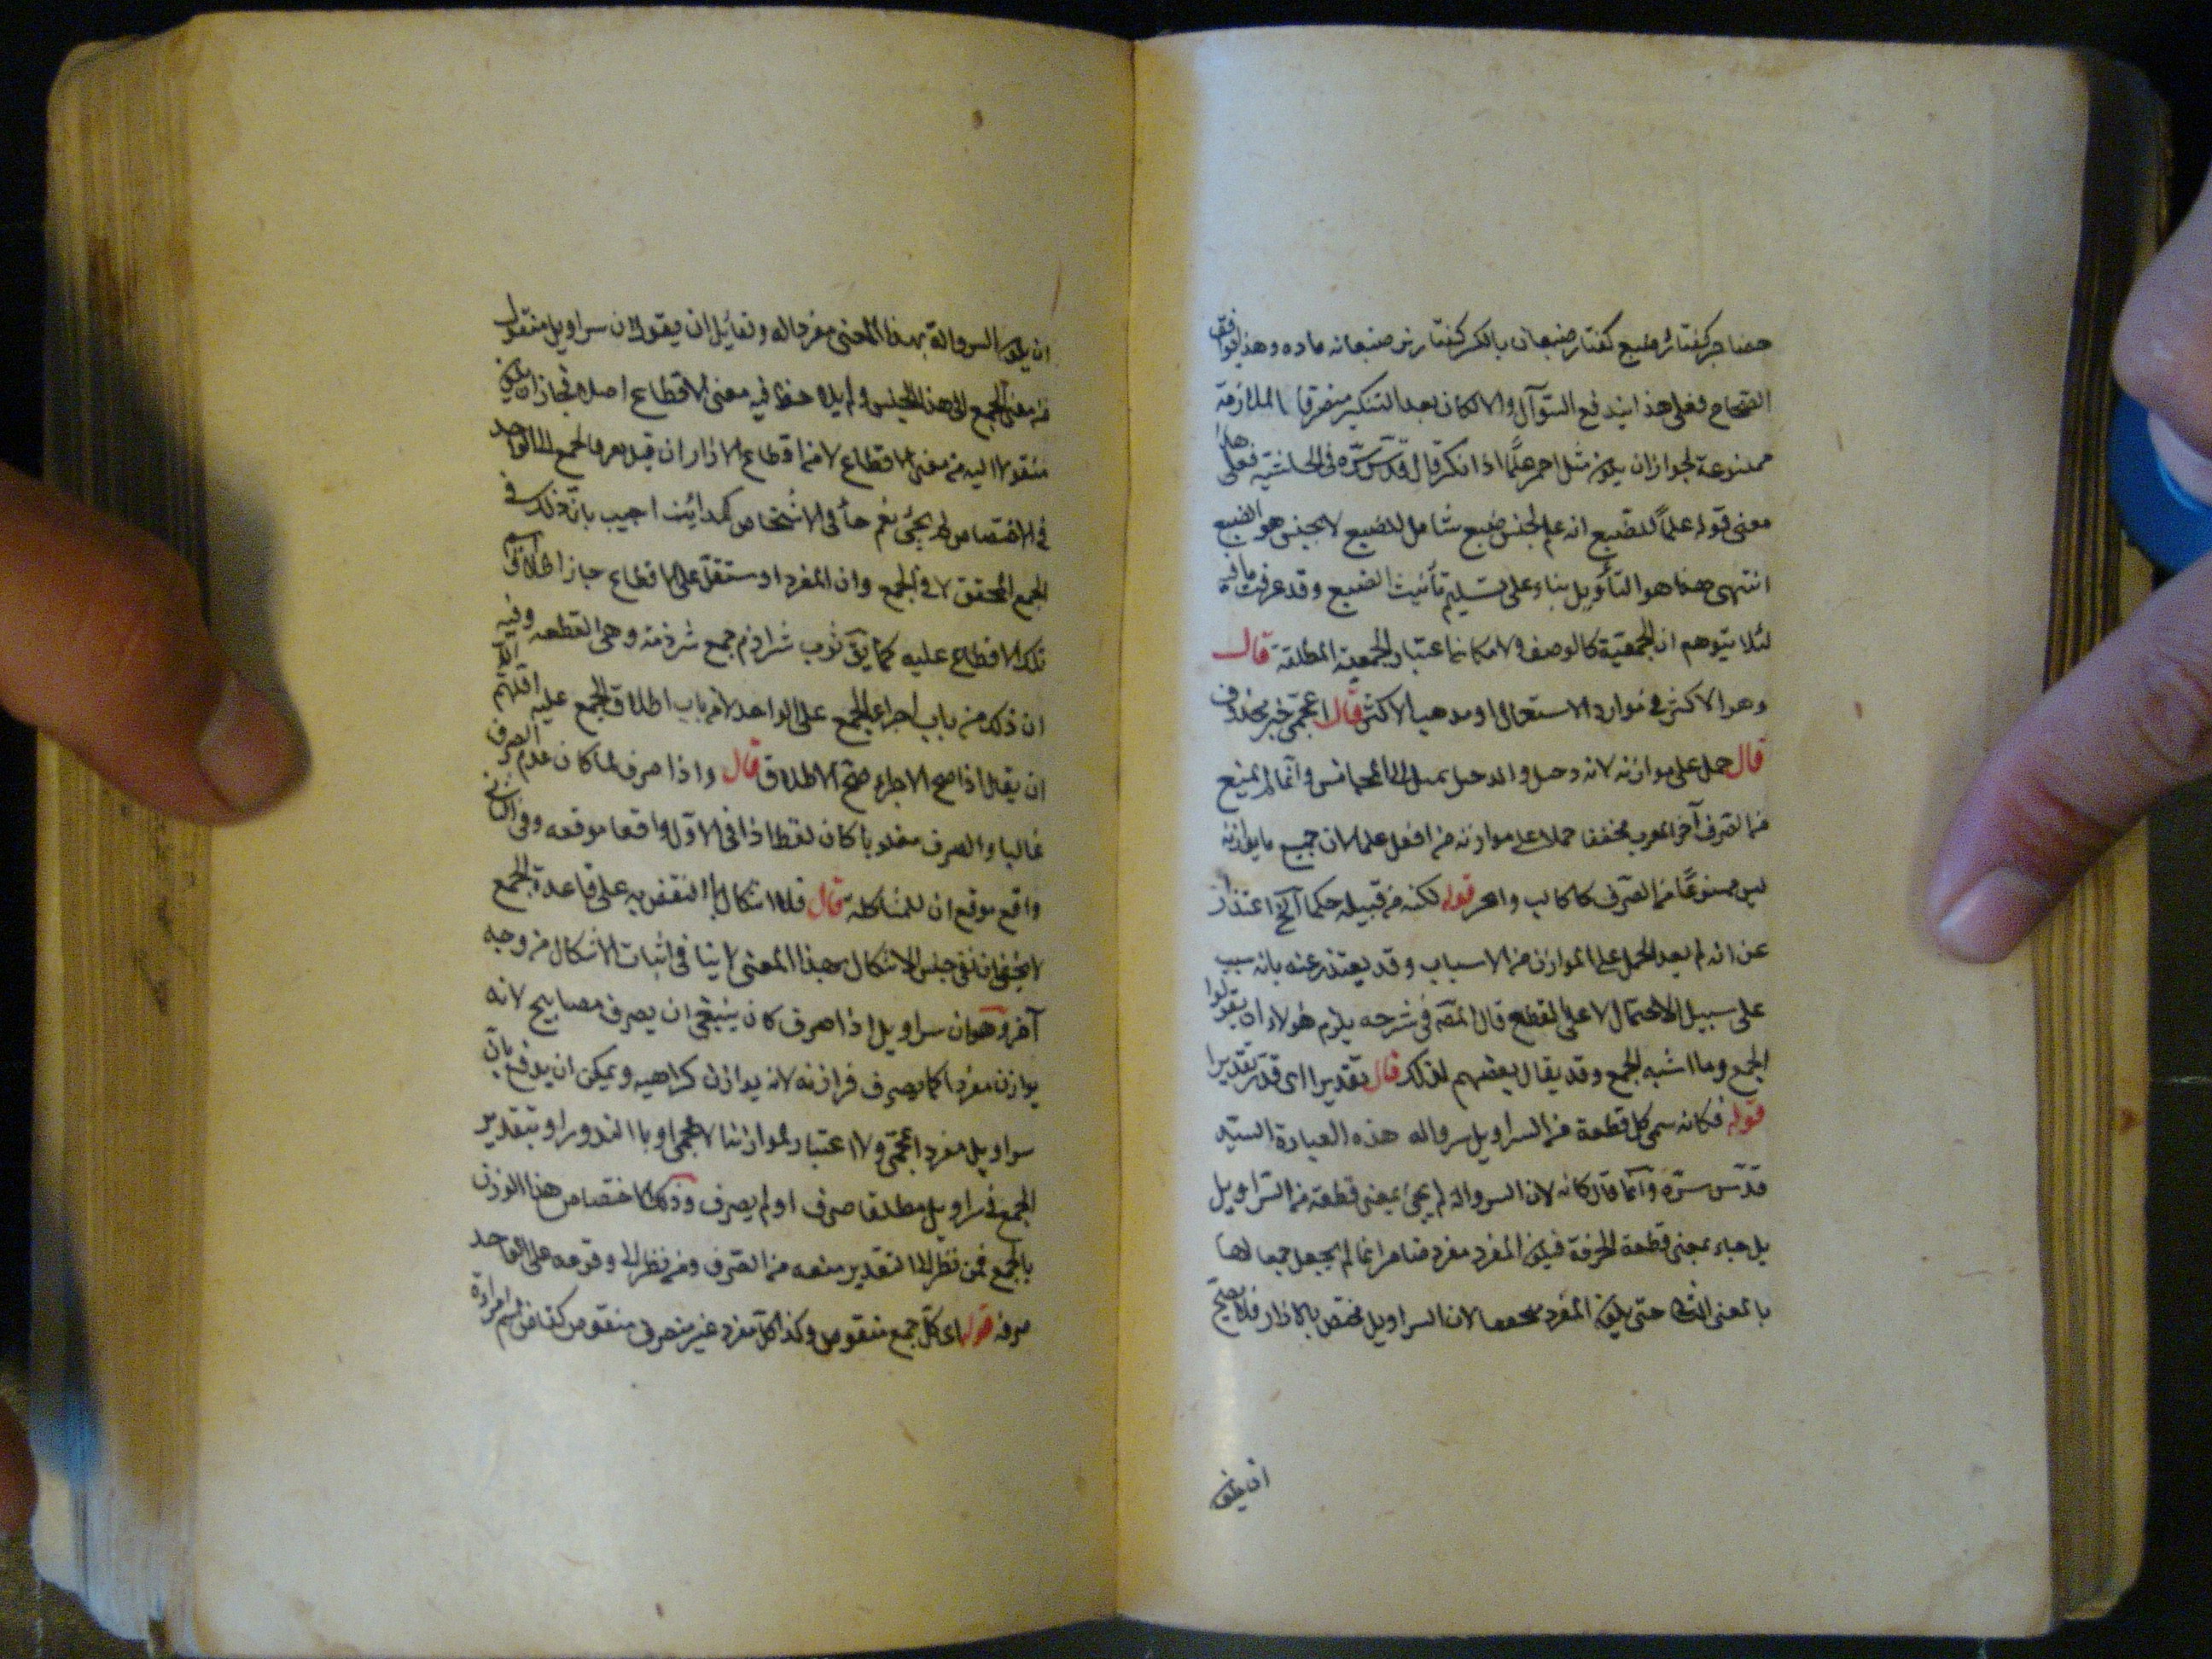 حضاجر كفتار ضبع كفتار ضبعان بالكسر كفتار نر ضبعانه ماده وهذا يوافق
الصحاح فعلى هذا يندفع السؤال والا لكان بعد التنكير منصرفا الملازمة
ممنوعة لجواز ان يكون مثل احمر علمًا اذا نكر قال قدّس سرّه فى الحاشية فعلى هذا
معنى قوله علمًا للضبع انه علم لجنس ضبع شامل للضبع لا لجنس هو الضبع
انتهى هذا هو التأويل بناء على تسليم تأنيث الضبع وقد عرفت ما فيه
لئلا يتوهم ان الجمعية كالوصف ولامكان اعتبار الجمعية المطلقة قال
وهو الاكثر فى موارد الاستعمال او مذهب الاكثر قال اعجمى خبر محذوف
قال حمل على موازنه لانه دخيل والدخيل يميل الى المجانس وانما لم يمنع
من الصرف آخر المعرب مخففا حملا على موازنه من افعل علما لان جميع ما يوازنه
ليس ممنوعًا من الصرف كاكالب وابحر قوله لكنه من قبيله حكما آلخ اعتذار
عن انه لم يعد الحمل على الموازن من الاسباب وقد يعتذر عنه بانه سبب
على سبيل الاحتمال لا على القطع قال المصّ فى شرحه يلزم هؤلاء ان يقولوا
الجمع وما اشبه الجمع وقد يقال بعضهم لذلك قال تقديرا اى قدّر تقديرا
قوله فكانه سمى كل قطعة من السراويل سرواله هذه العبارة السيّد
قدّس سرّه وانما قال كانه لان السروالة لم يجئ بمعنى قطعة من السّراويل
بل جاء بمعنى قطعة الخرقة فيكون المفرد مفرد انما لم يجعل جمعا لها
بالمعنى الثانى حتى يكون المفرد محققا لان السراويل مختص بالازار فلا يصحّ
ان يكون
ان يكون السروالة بهذا المعنى مفرداله ولقائل ان يقول ان سراويل منقول
من معنى الجمع الى هذا الجنس ولم يلاحظ فيه معنى الاقطاع اصلا فجاز ان يكون
منقولا اليه من معنى الاقطاع لا من اقطاع الازار ان قيل الجمع الى الواحد
فى الاختصاص لم يجئ نعم جاء فى الاشخاص كمدائن اجيب بان ذلك فى
الجمع المحقق لا فى الجمع وان المفرد او ستقلّ على الاقطاع جاز اطلاق اسم
تلك الاقطاع عليه كما يقّ ثوب شراذم جمع شرذمة وهى القطعه وفيه
ان ذلك من باب اجراء الجمع على الواحد لا من باب اطلاق الجمع عليه اللهم
ان يقال اذا صح الاجراء صحّ الاطلاق قال واذا صرف لما كان عدم الصرف
غالبا والصرف مغلوبا كان لفظ اذا فى الاوّل واقعا موقعه وفى الثانى
واقع موقع ان للمشاكلة قال فلا اشكال بالنقض به على قاعدة الجمع
لا يخفى ان نفى جنس الاشكال بهذا المعنى لا ينافى اثبات الاشكال من وجه
آخر وهو ان سراويل اذا صرف كان ينبغى ان يصرف مصابيح لانه
يوازن مفردا كما يصرف فرازنه لانه يوازن كراهيه ويمكن ان يدفع بان
سراويل مفرد اعجمى ولا اعتبار لموازنتا الاعجمى او بالندور او بتقدير
الجمع فى سراويل مطلقا صرف او لم يصرف وذلك لاختصاص هذا الوزن
بالجمع فمن نظر الى التقدير منعه من الصرف ومن نظر الى وقوعه على الواحد
صرفه قوله اى كلّ جمع منقوص وكذا كلّ مفرد غير منصرف منقوص كقاض اسم امرأة